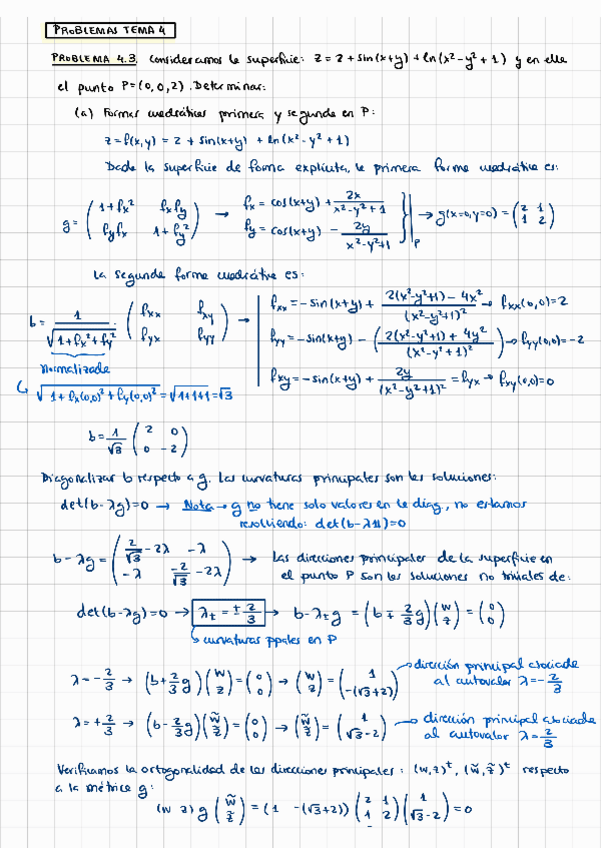 PROBLEMAS TEMA 4
PROBLEMA 4.3. Consideramos la superficie: z = 2 + sin(x+y) + ln(x² - y² + 1) y en ella
el punto P=(0,0,2). Determinar:
(a) Formas cuadráticas primera y segunda en P:
z = f(x,y) = 2 + sin(x+y) + ln(x² - y² + 1)
Dada la superficie de forma explícita, la primera forma cuadrática es:
g = ( 1+fx² fxfy ; fyfx 1+fy² ) → fx = cos(x+y) + 2x/(x²-y²+1) ; fy = cos(x+y) - 2y/(x²-y²+1) |P → g(x=0,y=0) = ( 2 1 ; 1 2 )
La segunda forma cuadrática es:
b = 1/√(1+fx²+fy²) ( fxx fxy ; fyx fyy ) →
fxx = -sin(x+y) + (2(x²-y²+1) - 4x²)/(x²-y²+1)² → fxx(0,0) = 2
fyy = -sin(x+y) - (2(x²-y²+1) + 4y²)/(x²-y²+1)² → fyy(0,0) = -2
fxy = -sin(x+y) + 2y/(x²-y²+1)² = fyx → fxy(0,0) = 0
Normalizada
↳ √(1+fx(0,0)²+fy(0,0)²) = √(1+1+1) = √3
b = 1/√3 ( 2 0 ; 0 -2 )
Diagonalizar b respecto a g. Las curvaturas principales son las soluciones:
det(b-λg)=0 → Nota → g no tiene solo valores en la diag, no estamos
resolviendo: det(b-λ1)=0
b - λg = ( 2/√3 - 2λ -λ ; -λ -2/√3 - 2λ ) → Las direcciones principales de la superficie en
el punto P son las soluciones no triviales de:
det(b-λg)=0 → λ± = ± 2/3 → b-λ±g = (b ∓ 2/3 g)( w ; z ) = ( 0 ; 0 )
↳ curvaturas ppales en P
λ = -2/3 → (b + 2/3 g)( w ; z ) = ( 0 ; 0 ) → ( w ; z ) = ( 1 ; -(√3+2) ) → dirección principal asociada
al autovalor λ = -2/3
λ = +2/3 → (b - 2/3 g)( w̃ ; z̃ ) = ( 0 ; 0 ) → ( w̃ ; z̃ ) = ( 1 ; √3-2 ) → dirección principal asociada
al autovalor λ = 2/3
Verificamos la ortogonalidad de las direcciones principales: (w,z)ᵗ, (w̃,z̃)ᵗ respecto
a la métrica g:
(w z) g ( w̃ ; z̃ ) = (1 -(√3+2)) ( 2 1 ; 1 2 ) ( 1 ; √3-2 ) = 0